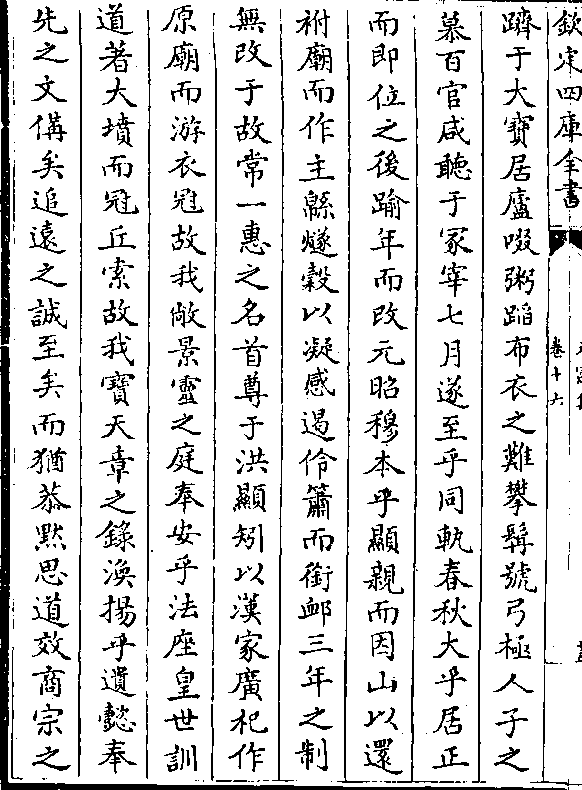 欽定四庫全書
卷十六
躋于大寶居廬啜粥蹈布衣之難攀髯號弓極人子之
慕百官咸聽于冢宰七月遂至乎同軌春秋大乎居正
而即位之後踰年而改元昭穆本乎顯親而因山以還
祔廟而作主緜燧榖以凝感遏伶簫而銜䘏三年之制
無改于故常一惠之名首尊于洪顯矧以漢家廣祀作
原廟而游衣冠故我敞景靈之庭奉安乎法座皇世訓
道著大墳而冠丘索故我寶天章之錄渙揚乎遺懿奉
先之文備矣追遠之誠至矣而猶恭黙思道效商宗之